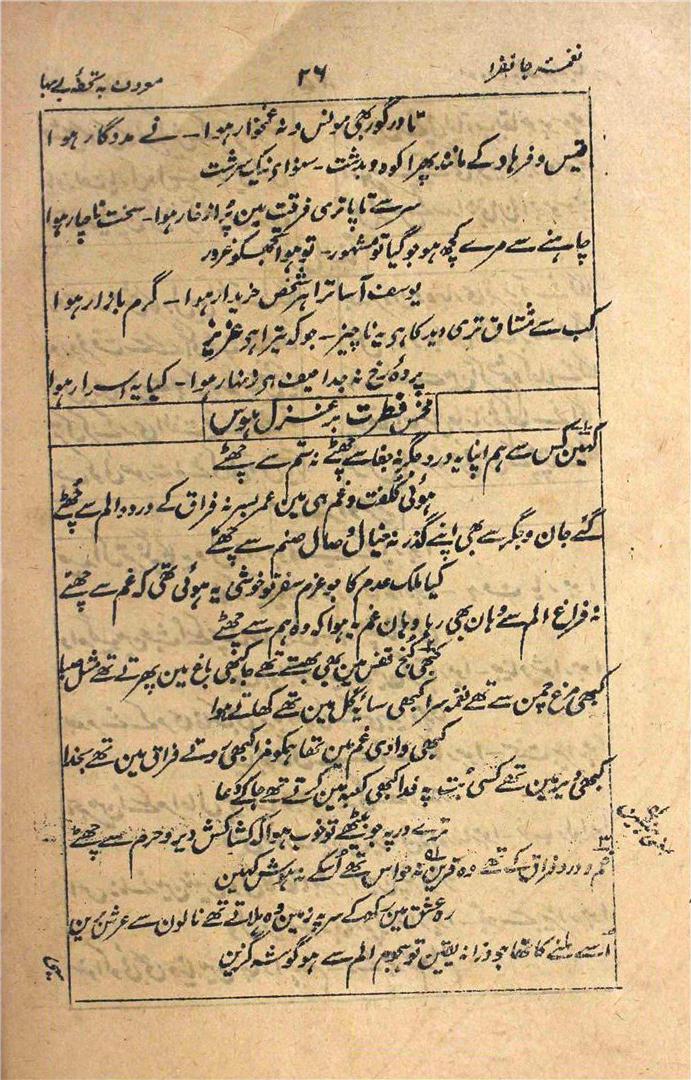 نغمۂ جانفزا ۲۶ موودن بہ تحفۂ بے بہا
تا در گور بھی مونس و نہ غمخوار ہوا - نے مددگار ہوا
قیس و فرہاد کے مانند پھرا کوہ و بدشت - سودائے نیک سرشت
سر سے تا پا تری فرقت مین پُر از خار ہوا - سخت ناچار ہوا
چاہنے سے مرے کچھ ہو جو گیا تو مشہور - تو ہوا تجھکو غرور
یوسف آسا ترا ہر شخص خریدار ہوا - گرم بازار ہوا
کب سے مشتاق تری دید کا ہو یہ ناچیز - جو کہ تیرا ہو عزیز
پردۂ رخ نہ جدا میف ہی دنہار ہوا - کیا یہ اسرار ہوا
مخمس فطرت بر غزل ہوس
کہین کس سے ہم اپنا یہ درد جگر نہ جفا سے چھٹے نہ ستم سے چھٹے
ہوئی کلفت و غم ہی مین عمر بسر نہ فراق کے درد و الم سے چھٹے
گئے جان و جگر سے بھی اپنے گذر نہ خیال وصال صنم سے چھٹے
کیا ملک عدم کا جو عزم سفر تو خوشی یہ ہوئی تھی کہ غم سے چھٹے
نہ فراغ الم سے وہان بھی رہا وہان غم یہ ہوا کہ وہ ہم سے چھٹے
کبھی کنج قفس مین بھی بھنستے تھے جا کبھی باغ مین پھرتے تھے مثل صبا
کبھی مرغ چمن سے تھے نغمہ سرا کبھی سایۂ گل مین تھے کھلتے ہوا
کبھی وادی غم مین تھا ہمکو فرا کبھی روتے فراق مین تھے بخدا
کبھی دیر مین تھے کسی بت پہ فدا کبھی کعبہ مین کرتے تھے جا کے دعا
ترے در پہ جو بیٹھے تو خوب ہوا کہ کشاکش دیر و حرم سے چھٹے
غم و درد فراق کے تھے وہ قرین نہ حواس تھے اُسکے نہ ہوش کہین
رہ عشق مین رکھ کے سر پہ زمین وہ ہلاتے تھے نالون سے عرش برین
اُسے ملنے کا تھا جو ذرا نہ یقین تو ہجوم الم سے ہو گوشہ گزین